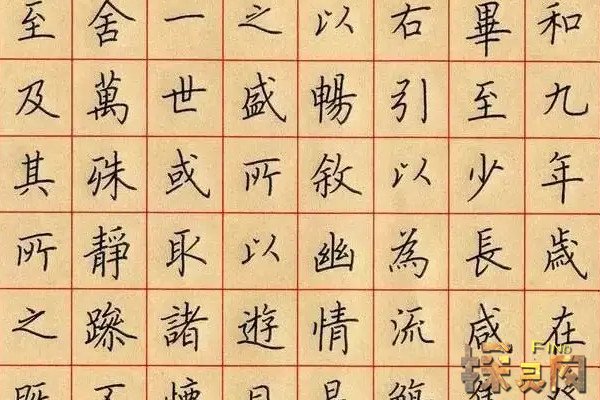 和九年歲在癸
畢至少長咸
右引以為流觴
以暢敘幽情是
之盛所以遊目
一世或取諸懷
舍萬殊靜躁不
至及其所之既
FIND
探灵网